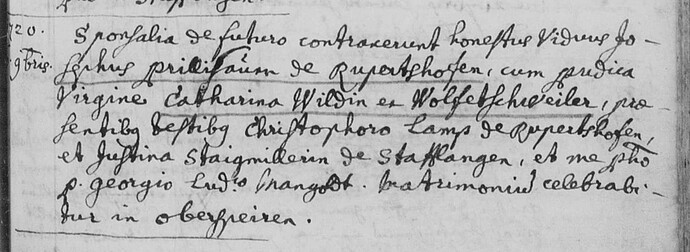 20. Sponsalia de futuro contraxerunt honestus Viduus Jo-
9bris. sephus de Rupertshofen, cum pudica
Virgine Catharina Wildin ex Wolfetschweiler, præ-
sentibq testibq Christophoro Lamp de Rupertshofen,
et Justina Staigmillerin de Stafflangen, et me pho
p. georgio Lud:o Mangoldt. Matrimoniũ celebrabi-
tur in oberspeiren.